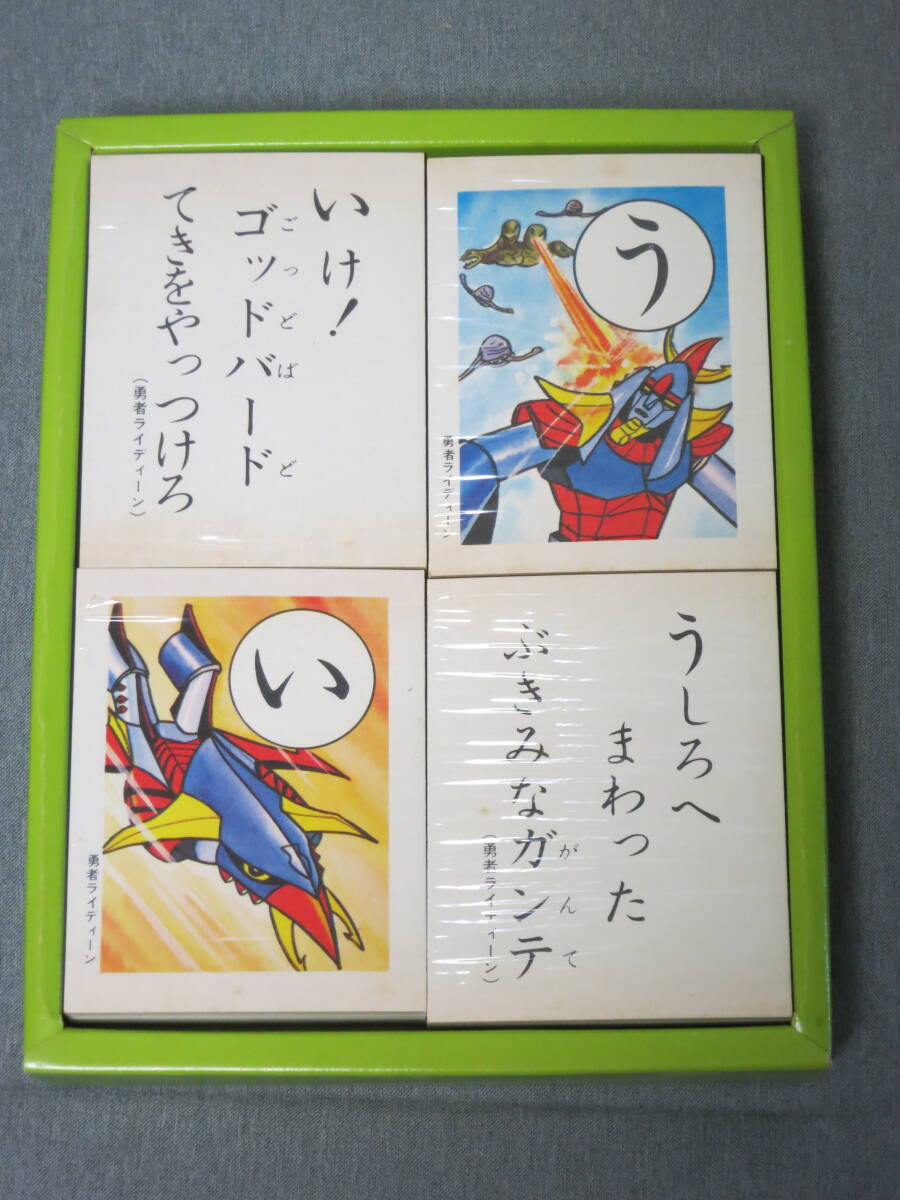 いけ!
ゴッドバード
ごっどばど
てきをやっつけろ
(勇者ライディーン)
う
勇者ライディーン
い
勇者ライディーン
うしろへ
まわった
ぶきみなガンテ
がんて
(勇者ライディーン)